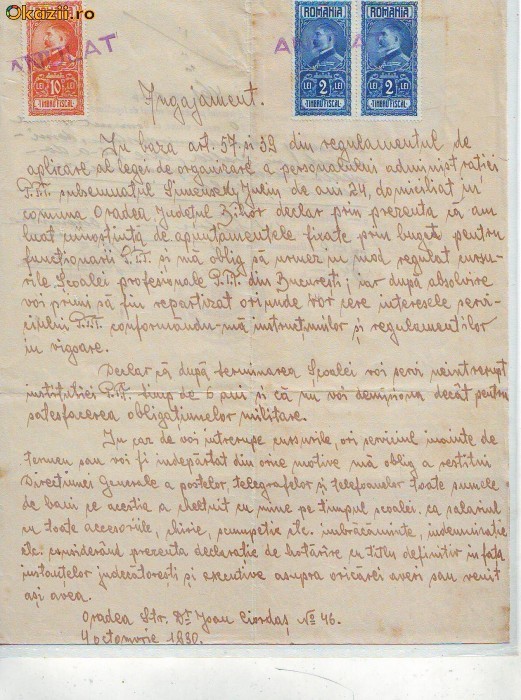 Okazii.ro
ROMANIA ROMANIA ROMANIA
ANULAT
LEI 10 LEI LEI 2 LEI LEI 2 LEI
TIMBRU FISCAL TIMBRU FISCAL TIMBRU FISCAL
Ingajament.
In baza art. 57 și 32 din regulamentul de
aplicare al legei de organizare a personalului administratiei
P.T.T. subsemnatul Iuliu de ani 24, domiciliat in
comuna Oradea Județul Bihor declar prin prezenta că am
luat cunoștința de apuntamentele fixate prin buget pentru
funcționarii P.T.T. și mă oblig să urmez in mod regulat cursu-
rile Școalei profesionale P.T.T. din București; iar după absolvire
voi primi să fiu repartizat ori unde vor cere interesele servi-
ciului P.T.T. conformându-mă instrucțiunilor și regulamentelor
in vigoare.
Declar că după terminarea Școalei voi servi neintrerupt
instituției P.T.T. timp de 6 ani și că nu voi demisiona decât pentru
satesfacerea obligațiunelor militare.
In caz de voi intrerupe cursurile, ori serviciul inainte de
termen sau voi fi indepărtat din orice motive mă oblig a restitui
Direcțiunei Generale a poștelor telegrafelor și telefoanelor toate sumele
de bani ce acestia a cheltuit cu mine pe timpul școalei, ca salariul
cu toate accesoriile, chirie, scumpetie etc. imbrăcăminte, indemnizație
etc. considerând prezenta declaratie de hotărîre cu titlu definitiv in fața
instanțelor judecătorești și executive asupra oricărei averi sau venit
ași avea.
Oradea Str. Dr Ioan Ciordaș No 46.
4 octomvrie 1930.